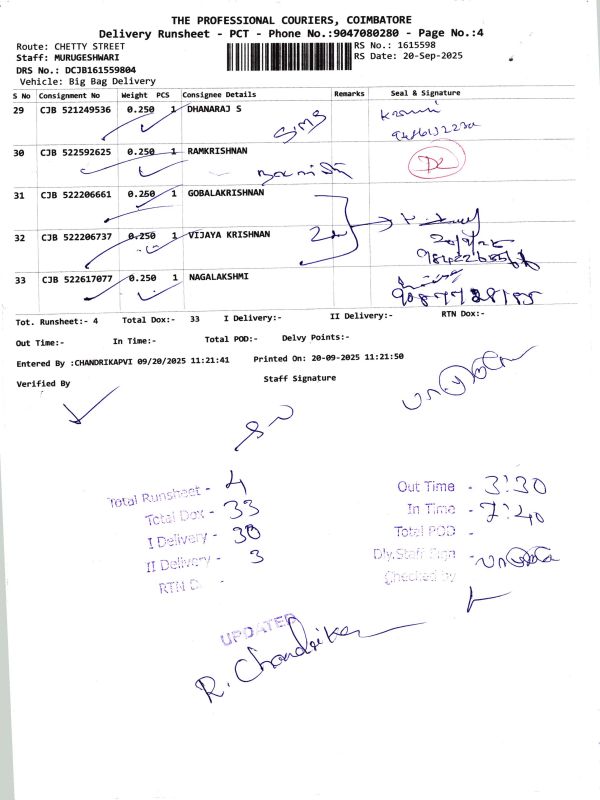 THE PROFESSIONAL COURIERS, COIMBATORE
Delivery Runsheet - PCT - Phone No.:9047080280 - Page No.:4
Route: CHETTY STREET RS No.: 1615598
Staff: MURUGESHWARI RS Date: 20-Sep-2025
DRS No.: DCJB161559804
Vehicle: Big Bag Delivery
S No Consignment No Weight PCS Consignee Details Remarks Seal & Signature
29 CJB 521249536 0.250 1 DHANARAJ S
SMS
30 CJB 522592625 0.250 1 RAMKRISHNAN
31 CJB 522206661 0.250 1 GOBALAKRISHNAN
32 CJB 522206737 0.250 1 VIJAYA KRISHNAN
20/9/25
33 CJB 522617077 0.250 1 NAGALAKSHMI
Tot. Runsheet:- 4 Total Dox:- 33 I Delivery:- II Delivery:- RTN Dox:-
Out Time:- In Time:- Total POD:- Delvy Points:-
Entered By :CHANDRIKAPVI 09/20/2025 11:21:41 Printed On: 20-09-2025 11:21:50
Verified By Staff Signature
Total Runsheet - 4
Total Dox - 33
I Delivery - 30
II Delivery - 3
RTN D -
Out Time - 3:30
In Time - 7:40
Total POD -
Dly.Staff Sign -
Checked by
UPDATED
R. Chandrika